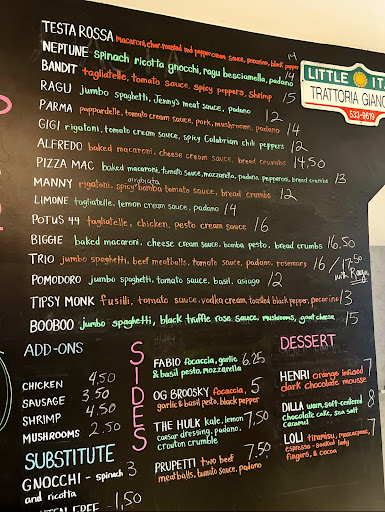 TESTA ROSSA macaroni, char-roasted red pepper cream sauce, pecorino, black pepper 14
NEPTUNE spinach ricotta gnocchi, ragu besciamella, padano 14
BANDIT tagliatelle, tomato sauce, spicy peppers, shrimp 15
RAGU jumbo spaghetti, Jenny's meat sauce, padano 12
PARMA pappardelle, tomato cream sauce, pork, mushroom, padano 14
GIGI rigatoni, tomato cream sauce, spicy Calabrian chili peppers 12
ALFREDO baked macaroni, cheese cream sauce, bread crumbs 14,50
PIZZA MAC baked macaroni, tomato sauce, mozzarella, padano, pepperoni, bread crumbs 13
arrabiata
MANNY rigatoni, spicy bomba tomato sauce, bread crumbs 12
LIMONE tagliatelle, lemon cream sauce, padano 14
POTUS 44 tagliatelle, chicken, pesto cream sauce 16
BIGGIE baked macaroni, cheese cream sauce, bomba pesto, bread crumbs 16.50
TRIO jumbo spaghetti, beef meatballs, tomato sauce, padano, rosemary 16 / 17.50
with Ragu
POMODORO jumbo spaghetti, tomato sauce, basil, asiago 12
TIPSY MONK fusilli, tomato sauce, vodka cream, toasted black pepper, pecorino 13
BOOBOO jumbo spaghetti, black truffle rose sauce, mushrooms, goat cheese 15
LITTLE ITA
TRATTORIA GIANC
533-9619
ADD-ONS
CHICKEN 4,50
SAUSAGE 3,50
SHRIMP 4.50
MUSHROOMS 2.50
SUBSTITUTE
GNOCCHI - spinach 3
and ricotta
GLUTEN FREE - 1,50
SIDES
FABIO focaccia, garlic 6.25
& basil pesto, mozzarella
OG BROOSKY focaccia, 5
garlic & basil pesto, black pepper
THE HULK kale, lemon 7,50
caesar dressing, padano,
crouton crumble
PRUPETTI two beef 7.50
meatballs, tomato sauce, padano
DESSERT
HENRI orange infused 7
dark chocolate mousse
DILLA warm, soft-centered 8
chocolate cake, sea salt
caramel
LOLI tiramisu, mascarpone, 7
espresso-soaked lady
fingers, & cocoa